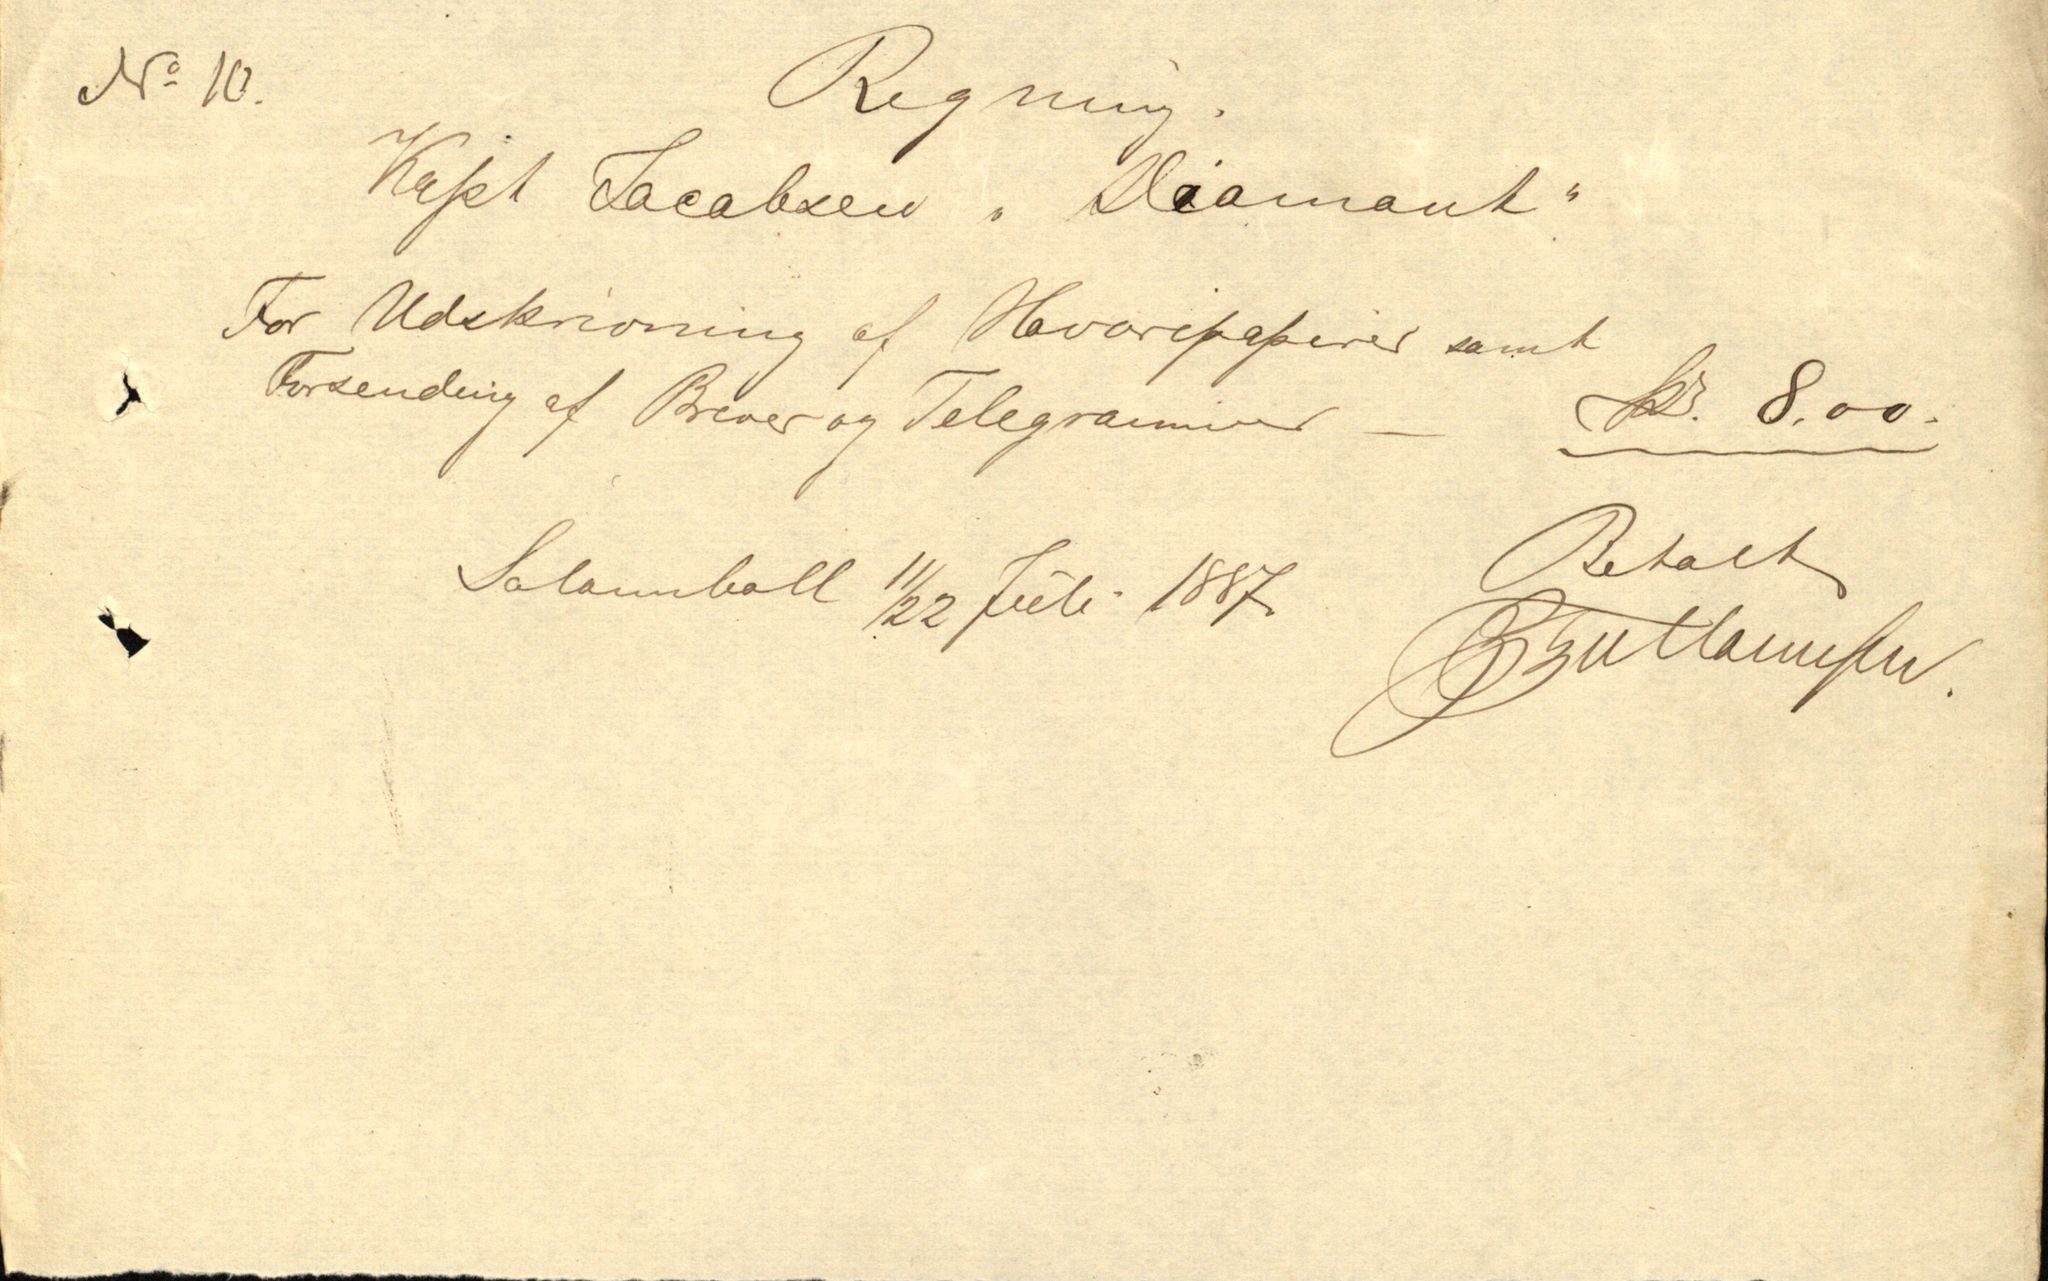 No 10.
Regning.
Kapt Jacobsen „Diamant"
For Udskrivning af Havaripapirer samt
Forsending af Brever og Telegrammer — Kr. 8.00.
Solombali 11/22 Juli 1887.
Betalt